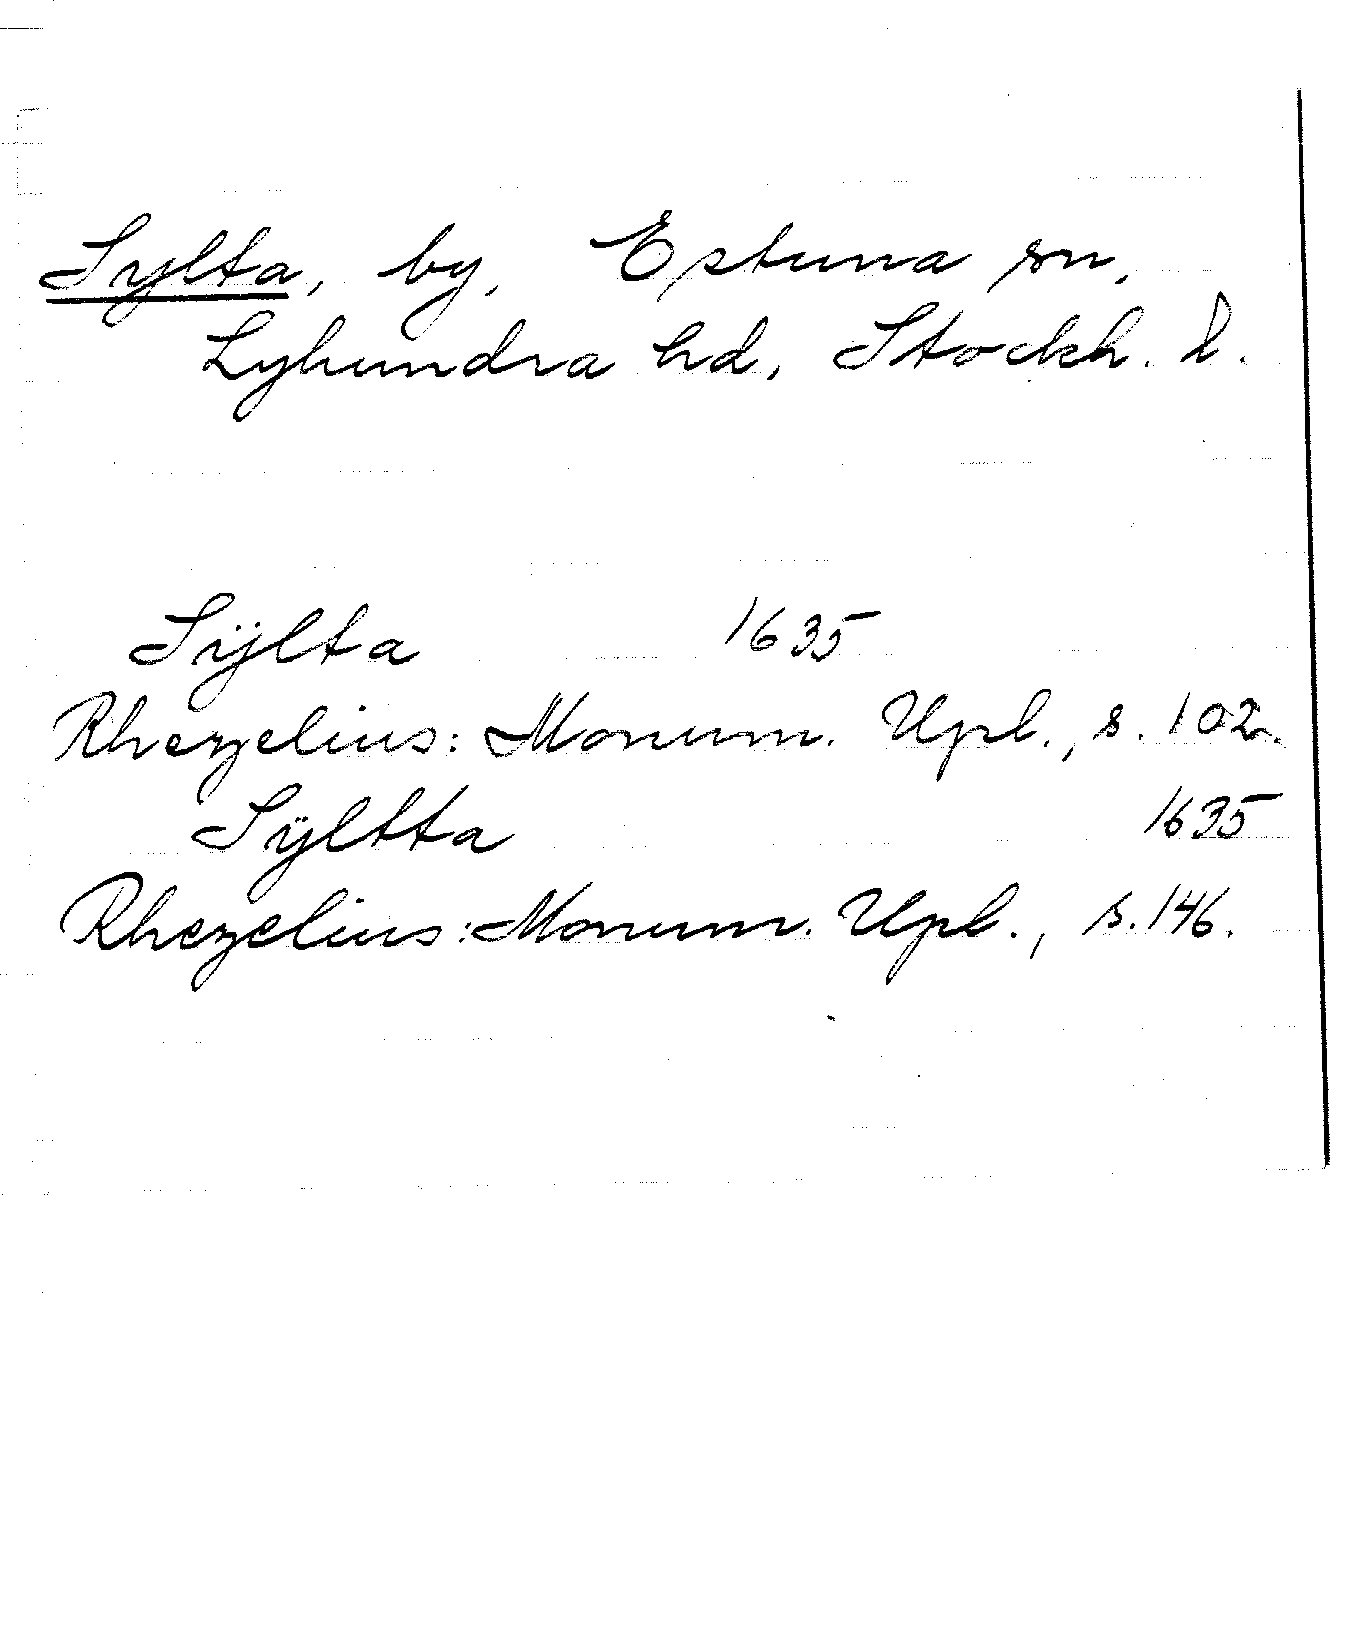 Sylta, by, Estuna sn,
Lyhundra hd, Stockh. l.
Sÿlta 1635
Rhezelius: Monum. Upl., s. 102.
Sÿltta 1635
Rhezelius: Monum. Upl., s. 146.